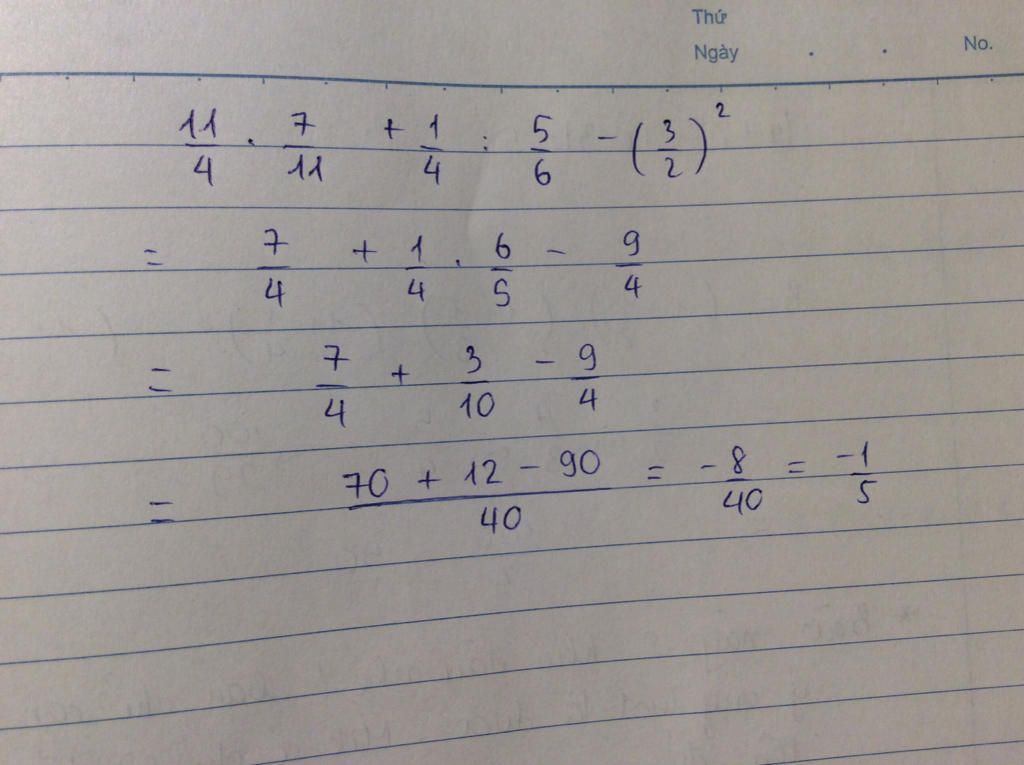 Thứ
Ngày . . No.
11/4 . 7/11 + 1/4 : 5/6 - (3/2)²
= 7/4 + 1/4 . 6/5 - 9/4
= 7/4 + 3/10 - 9/4
= (70 + 12 - 90)/40 = -8/40 = -1/5